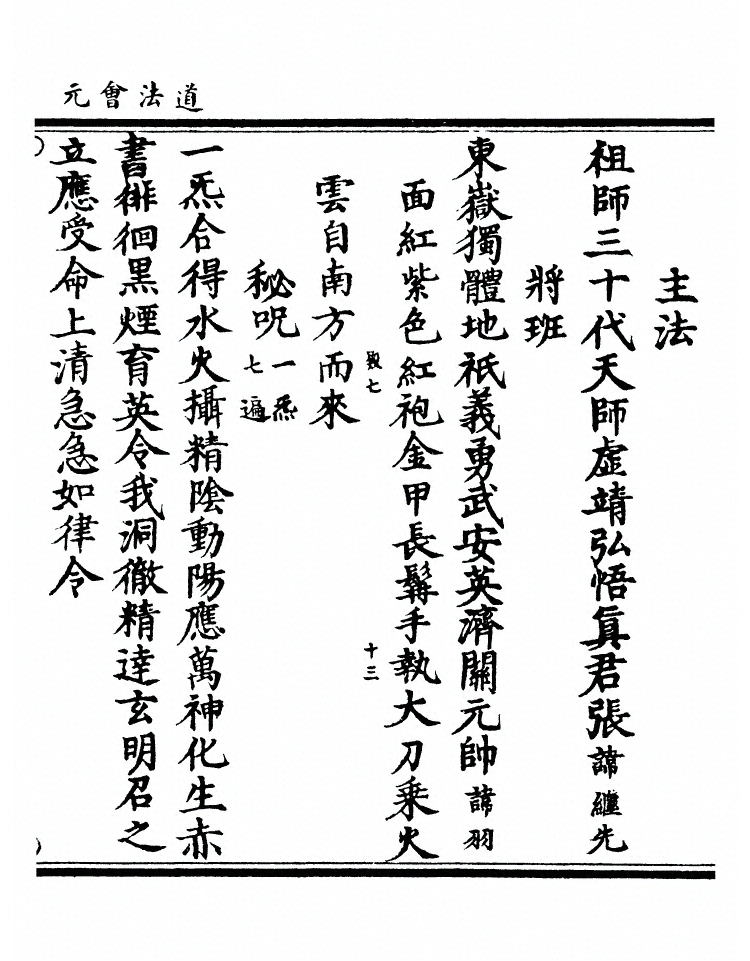 道法會元
主法
祖師三十代天師虛靖弘悟眞君張諱繼先
將班
東嶽獨體地祇義勇武安英濟關元帥諱羽
面紅紫色紅袍金甲長髯手執大刀乘火
雲自南方而來
數七
十三
秘咒一炁七遍
一炁合得水火攝精陰動陽應萬神化生赤
書徘徊黑煙育英令我洞徹精達玄明召之
立應受命上清急急如律令